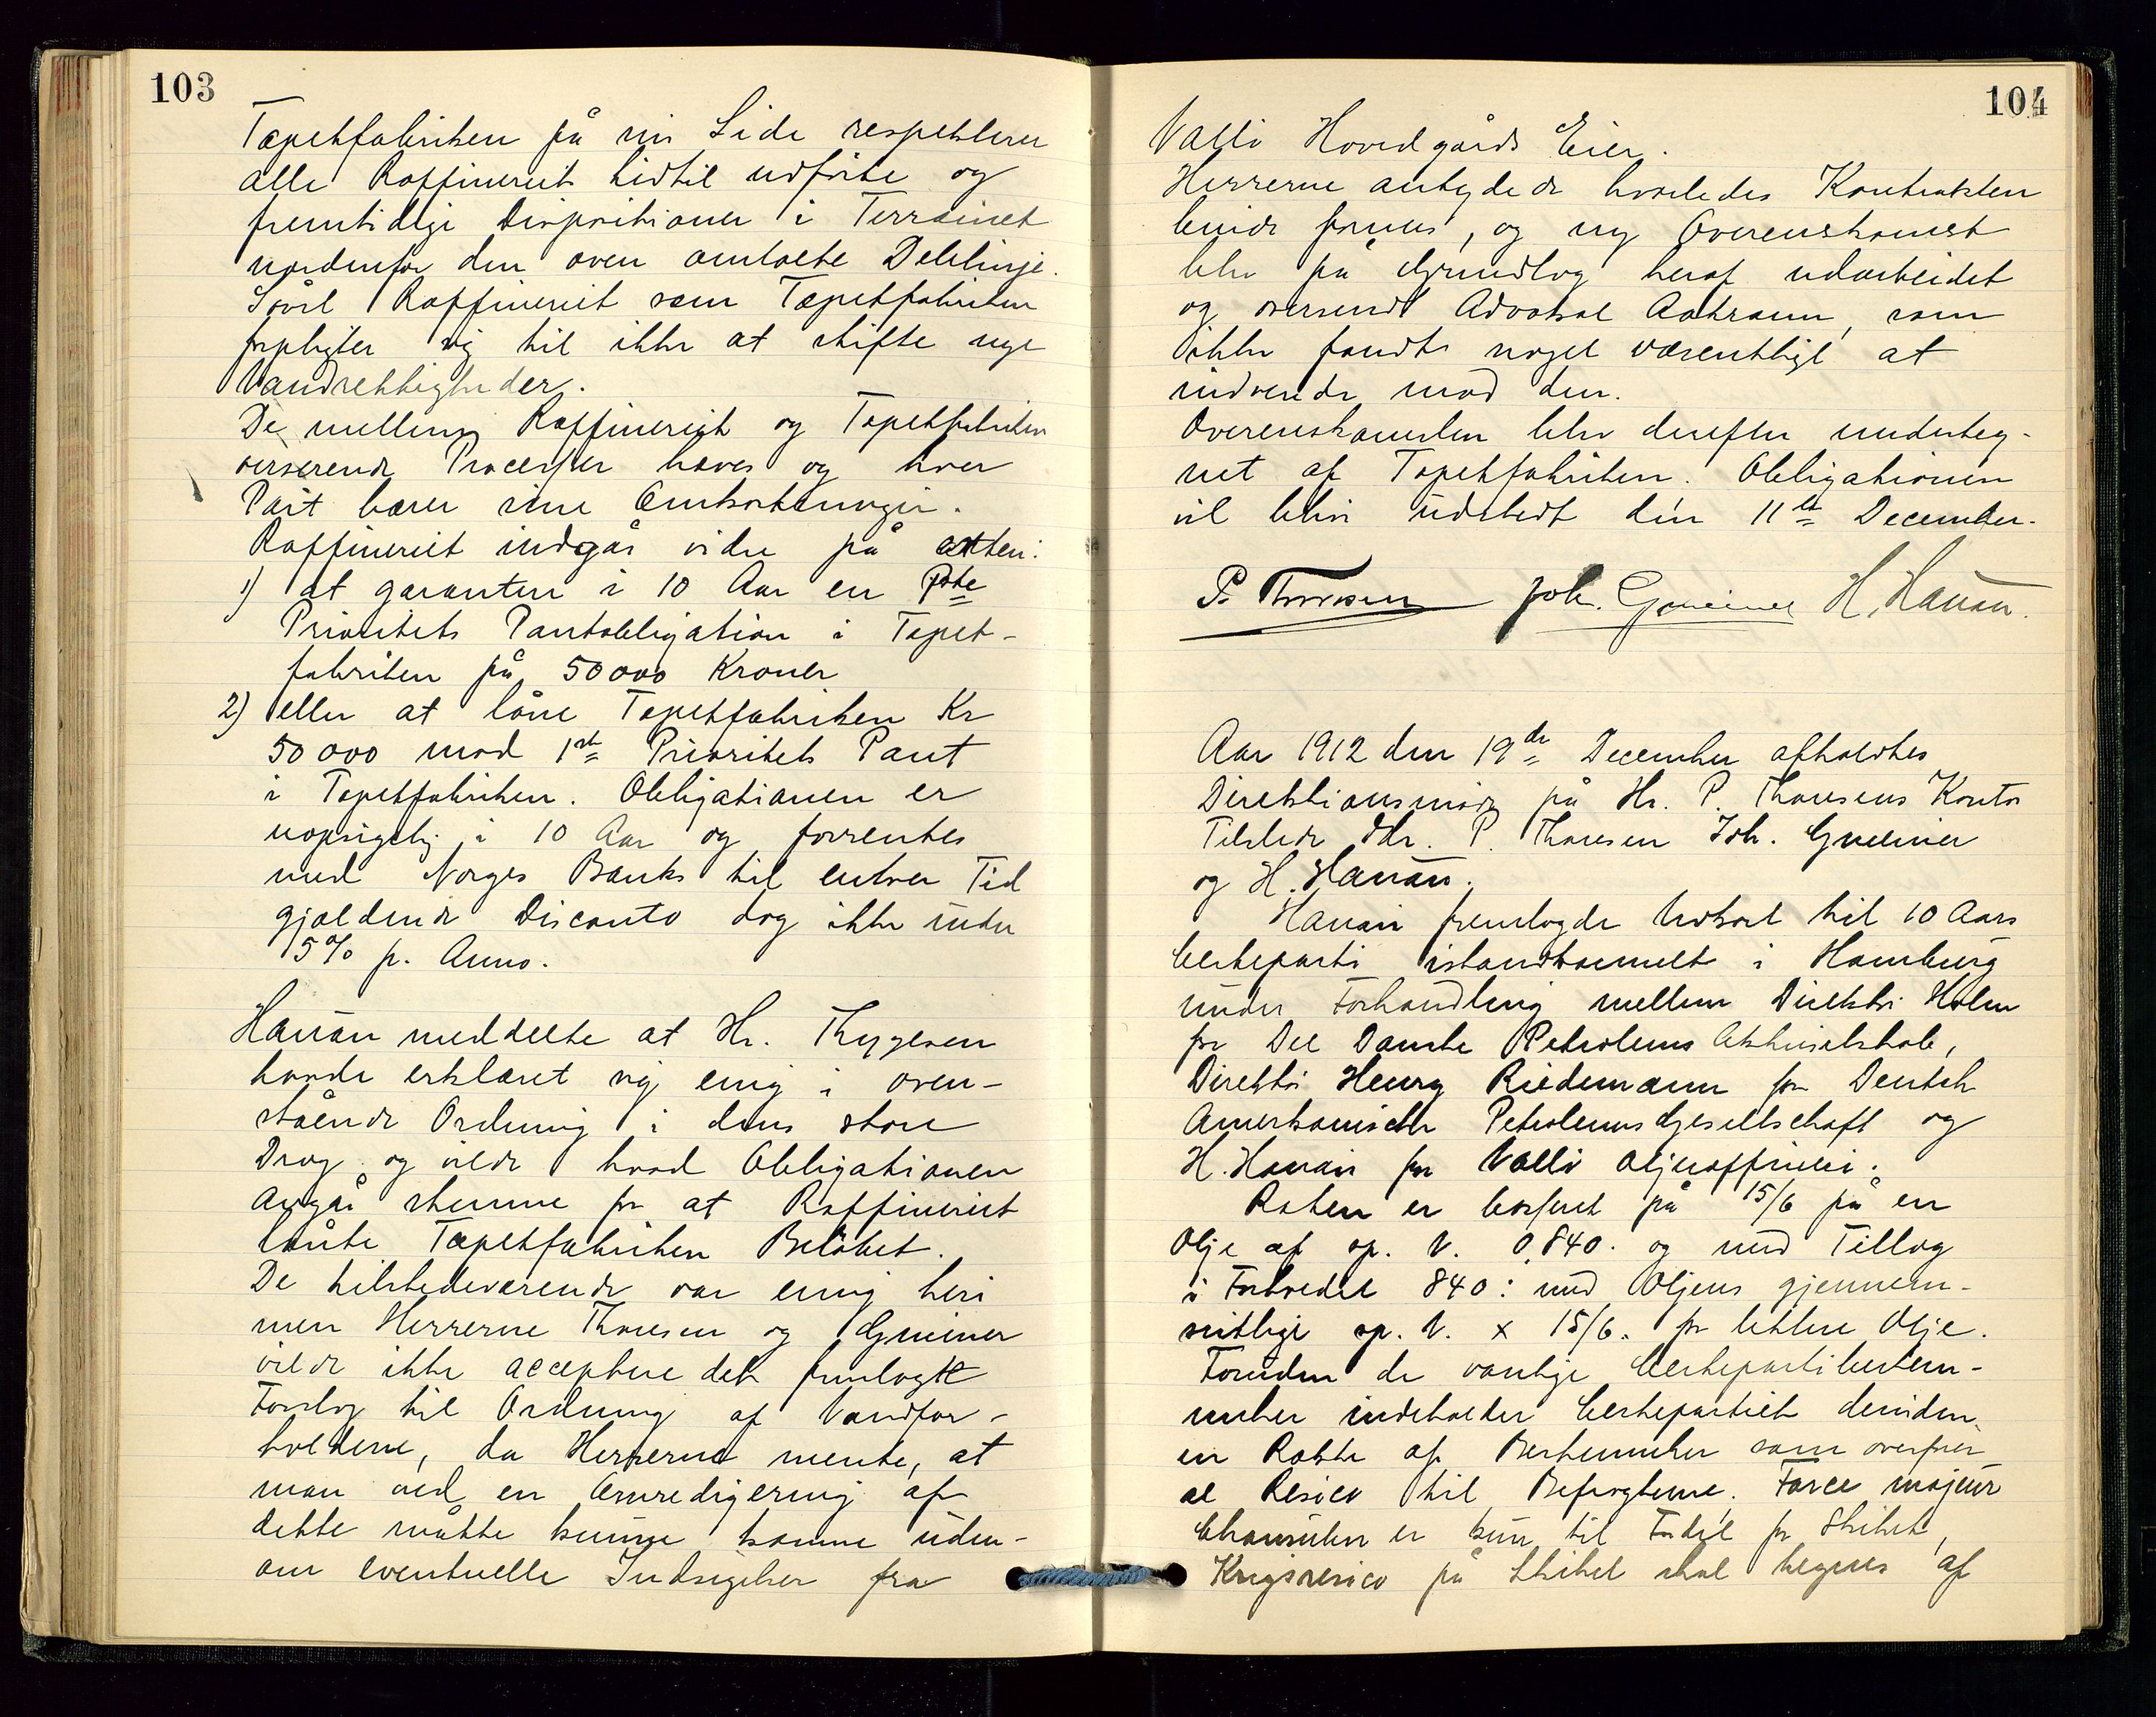 103
Tapetfabriken på sin Side respekterer
alle Raffineriets hidtil udførte og
fremtidige Dispositioner i Terrainet
nordenfor den oven omtalte Delelinje.
Såvel Raffineriet som Tapetfabriken
forpligter sig til ikke at stifte nye
Vandrettigheder.
De mellem Raffineriet og Tapetfabriken
verserende Processer hæves og hver
Part bærer sine Omkostninger.
Raffineriet indgår videre på enten:
1) at garantere i 10 Aar en 1ste
Prioritets Pantobligation i Tapet-
fabriken på 50000 Kroner
2) eller at låne Tapetfabriken Kr
50000 mod 1ste Prioritets Pant
i Tapetfabriken. Obligationen er
uopsigelig i 10 Aar og forrentes
med Norges Banks til enhver Tid
gjældende Disconto dog ikke under
5% p. Anno.
Hauan meddelte at Hr. Thygesen
havde erklæret sig enig i oven-
stående Ordning i dens store
Drag og vilde hvad Obligationen
angår stemme for at Raffineriet
lånte Tapetfabriken Beløbet.
De tilstedeværende var enig heri
men Herrerne Thoresen og Gmeiner
vilde ikke acceptere det fremlagte
Forslag til Ordning af Vandfor-
holdene, da Herrerne mente, at
man ved en Omredigering af
dette måtte kunne komme uden-
om eventuelle Indsigelser fra
104
Vallø Hovedgårds Eier.
Herrerne antydede hvorledes Kontrakten
burde formes, og ny Overenskomst
blev på Grundlag heraf udarbeidet
og oversendt Advokat Aakrann, som
ikke fandt noget væsentligt at
indvende mod den.
Overenskomsten blev derefter underteg-
net af Tapetfabriken. Obligationen
vil blive udstedt den 11te December.
P. Thoresen Joh. Gmeiner H. Hauan.
Aar 1912 den 19de December afholdtes
Direktionsmøde på Hr. P. Thoresens Kontor
Tilstede Hr. P. Thoresen Joh. Gmeiner
og H. Hauan.
Hauan fremlagde Udkast til 10 Aars
Certeparti istandkommet i Hamburg
under Forhandling mellem Direktør Holm
for Det Danske Petroleums Aktieselskab,
Direktør Henry Riedemann for Deutsch
Amerkanische Petroleums Gesellschaft og
H. Hauan for Vallø Oljeraffineri.
Raten er baseret på 15/6 på en
Olje af sp. V. 0,840. og med Tillæg
i Forholdet 840: med Oljens gjennem-
snitlige sp. V. x 15/6. for lettere Olje.
Foruden de vanlige Certepartibestem-
melser indeholder Certepartiet desuden
en Række af Bestemmelser som overfører
al Resico til Befragterne. Force majeur
Clausulen er kun til Fordel for Skibet,
Krigsresico på Skibet skal tegnes af